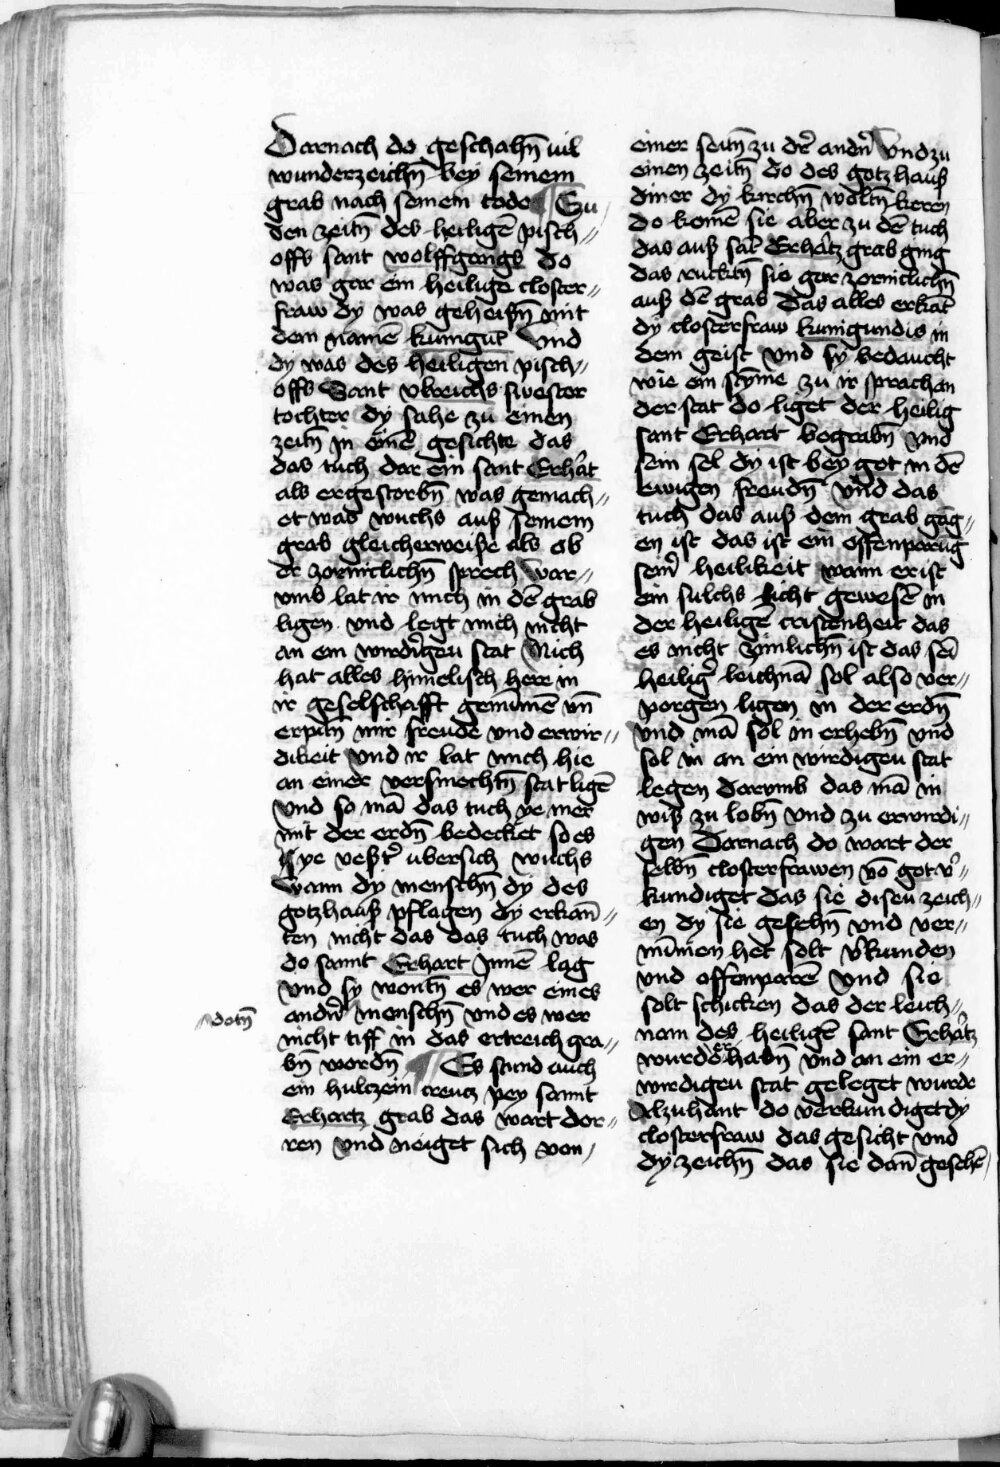 Darnach do geschahn̄ uil
wunderzeichn̄ bey seinem
grab nach seinem tode Zu
den zeitn̄ des heiligē pisch//
offs sant wolffgangs do
was gar ein heilige closter//
fraw dy was geheisn̄ mit
dem namen kunigut Vnd
dy was des heiligen pisch//
offs Sant vlreichs swester
tochter dy sahe zu einen
zeitn̄ in einē gesichte das
das tuch dar ein sant Erhāt
als er gestorbn̄ was gemach//
et was wuchs auß seinem
grab gleicherweiße als ob
er zorniclichn̄ sprech War//
vmb lat ir mich in dē grab
ligen vnd legt mich nicht
an ein wirdigeu stat Mich
hat alles himelisch herr in
ir geselschafft genūmen vn̄
erputn̄ mir freude vnd erwir//
dikeit Vnd ir lat mich hie
an einer versmechtn̄ stat ligē
Vnd so mā das tuch ye mer
mit der erdn̄ bedecket so es
ye vester ubersich wuchs
Wann dy menschn̄ dy des
gotzhauß pflagen dy erkan̄//
ten nicht das das tuch was
do sannt Erhart Innen lag
Vnd sy wontn̄ es wer eines
andn̄ menschn̄ vnd es wer
dotn̄
nicht tiff in das ertreich gra//
bn̄ wordn̄ Es stund auch
ein hulczein creucz pey sannt
Erhartz grab das wart dor//
ren vnd neiget sich von/
einer seitn̄ zu dr̄ andn̄ Vnd zu
einen zeitn̄ do des gotzhauß
diner dy kirchn̄ woltn̄ keren
do komen sie aber zu dē tuch
das auß sāt Erhātz grab ging
das rucktn̄ sie gar zorniclichn̄
auß dē grab Das alles erkāt
dy closterfraw kunigundis in
dem geist Vnd sy bedaucht
wie ein stym̄e zu ir sprach an
der stat do liget der heilig
sant Erhart begrabn̄ vnd
sein sel dy ist bey got in dē
ewigen freudn̄ Vnd das
tuch das auß dem grab gāg//
en ist das ist ein offenparūg
seinr̄ heilikeit wann er ist
ein sulchs licht gewesē in
der heiligē cristenheit das
es nicht zimlichn̄ ist das sei
heiliger leichnā sol also ver//
porgen ligen in der erdn̄
Vnd mā sol in erhebn̄ vnd
sol in an ein wirdigeu stat
legen darvmb das mā in
wiß zu lobn̄ vnd zu erwirdi//
gen Darnach do wart der
selbn̄ closterfrawen vō got v̓//
kundiget das sie diseu zeich//
en dy sie gesehn̄ vnd ver//
nūmen het solt v̓kunden
vnd offenparē Vnd sie
solt schicken das der leich//
nam des heiligē sant Erhātz
wurd erhabn̄ vnd an ein er//
wirdigeu stat geleget wurde
Alzuhant do verkundiget dy
closterfraw das gesicht vnd
dy zeichn̄ das sie dan̄ geschē/